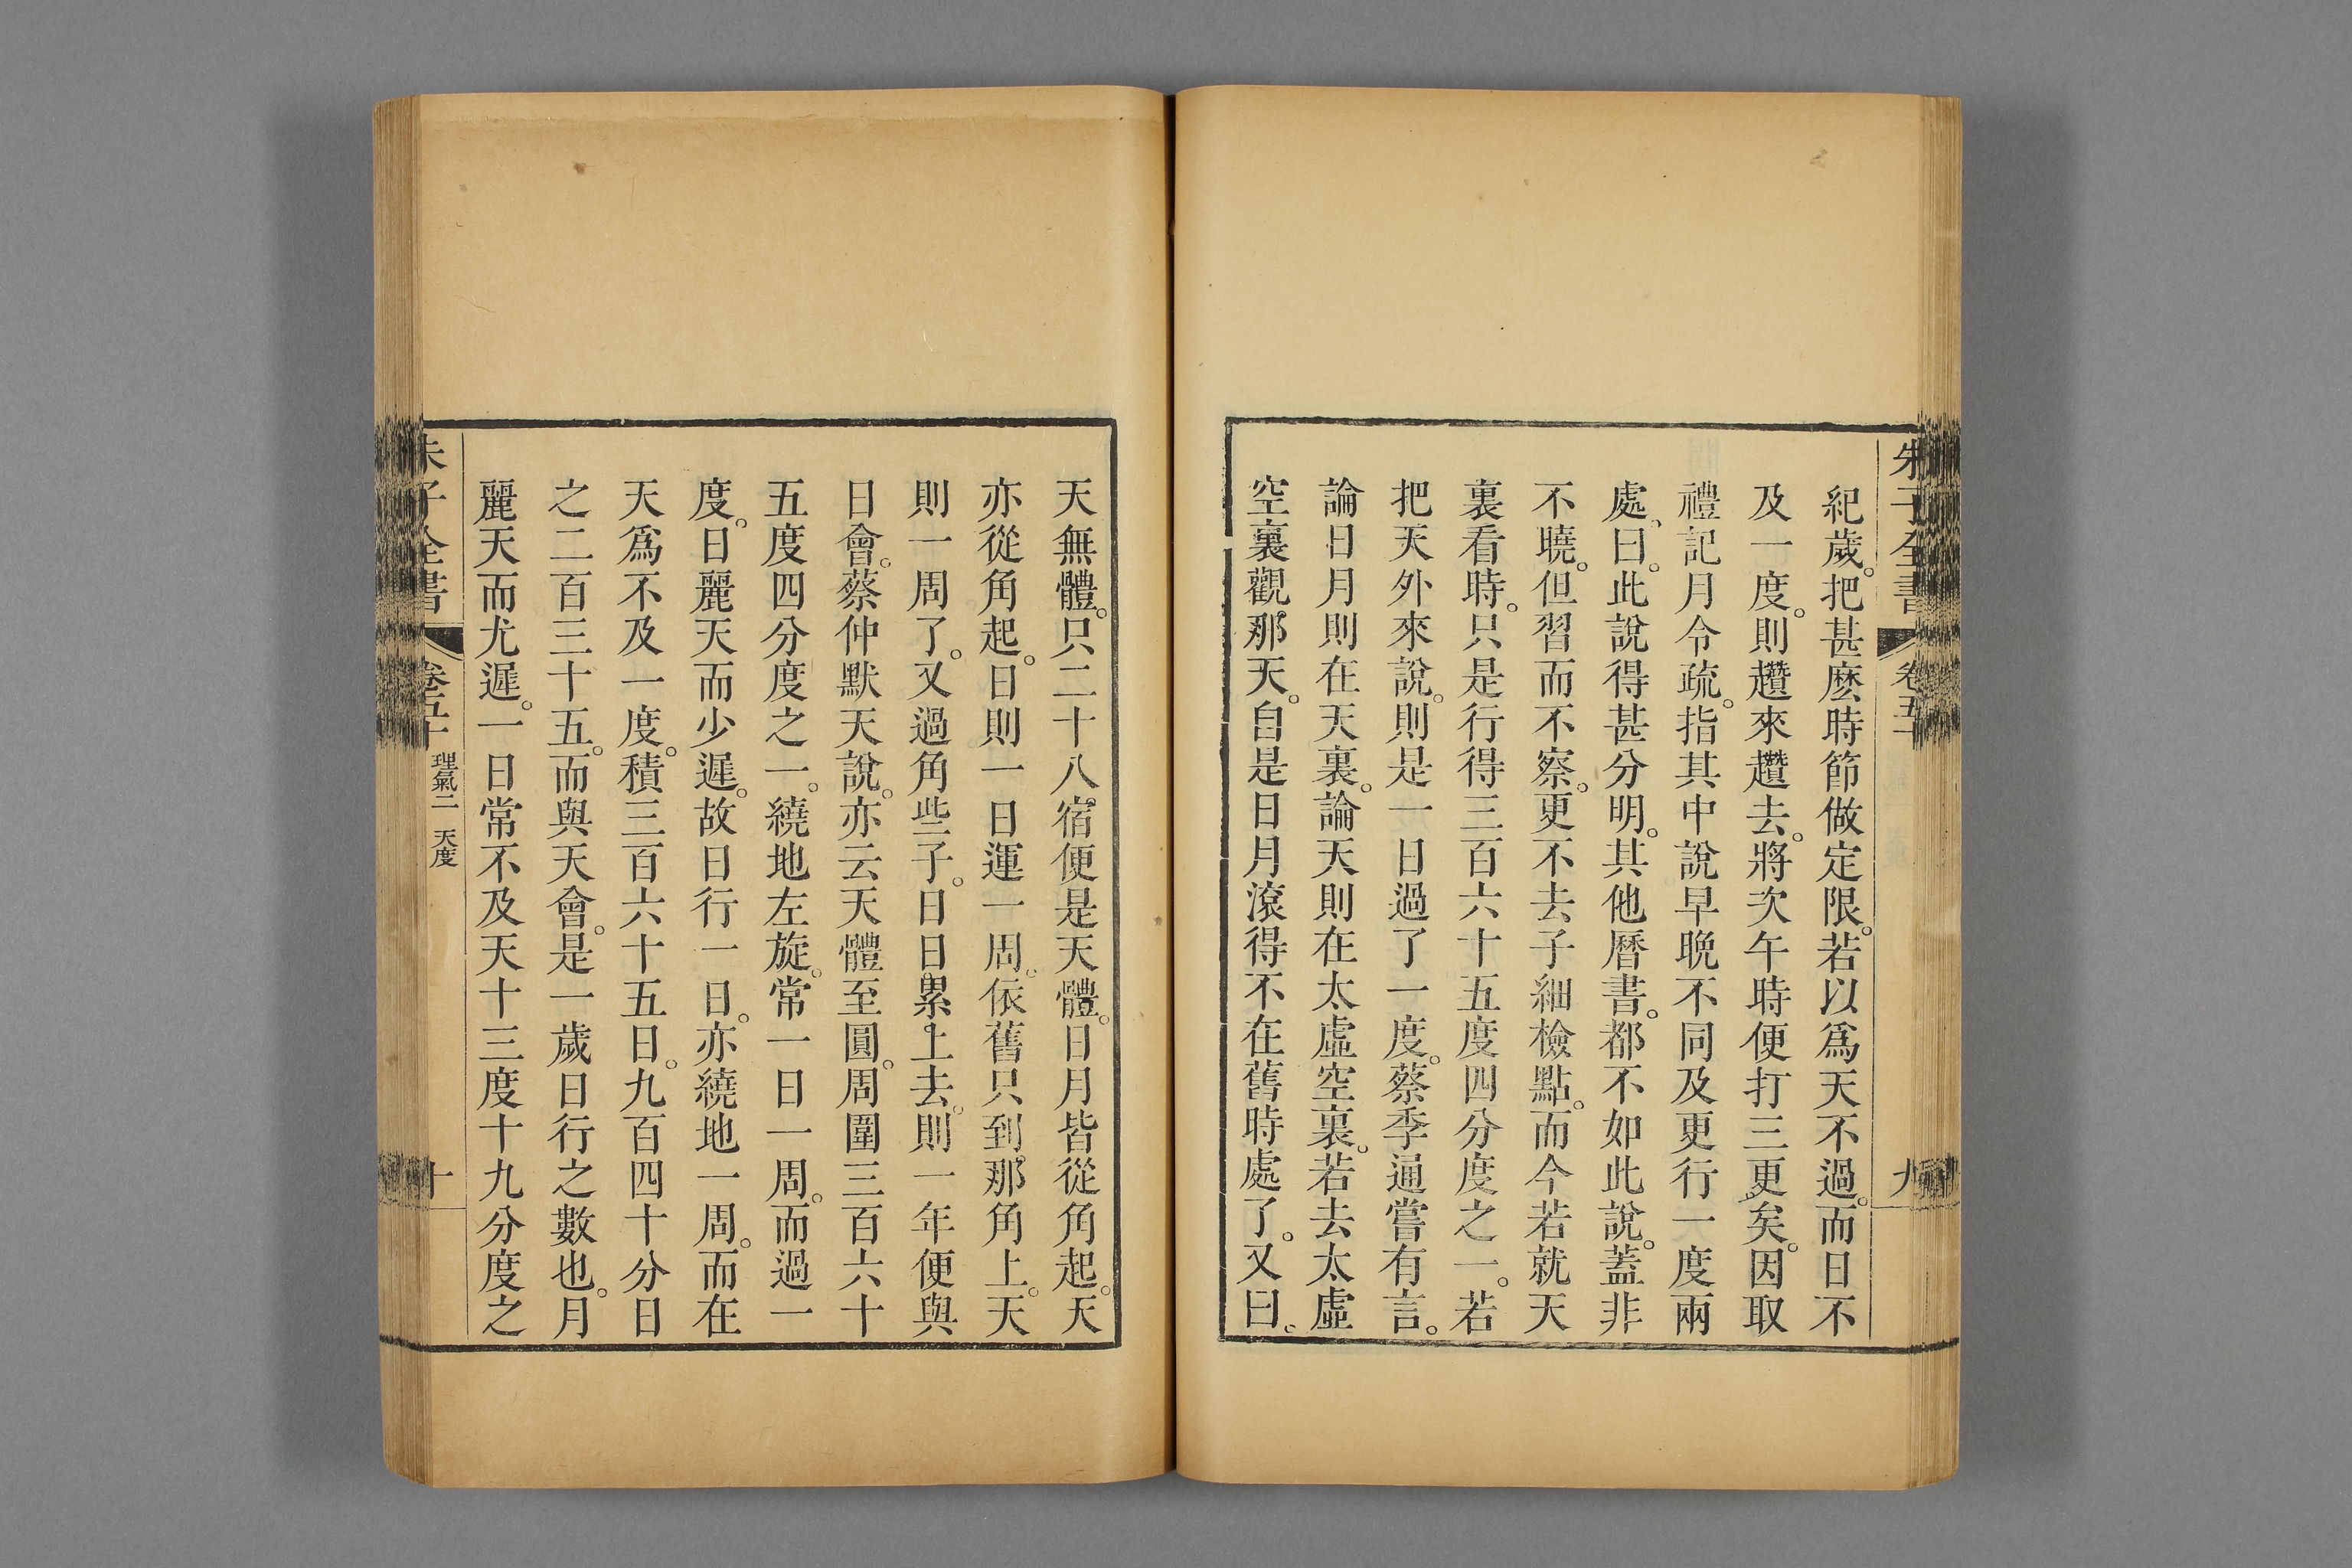 朱子全書
卷五十
九
紀歲。把甚麽時節做定限。若以爲天不過。而日不
及一度。則趲來趲去。將次午時便打三更矣。因取
禮記月令疏。指其中說早晚不同及更行一度兩
處。曰。此說得甚分明。其他曆書。都不如此說。蓋非
不曉。但習而不察。更不去子細檢點。而今若就天
裏看時。只是行得三百六十五度四分度之一。若
把天外來說。則是一日過了一度。蔡季通嘗有言。
論日月則在天裏。論天則在太虛空裏。若去太虛
空裏觀那天。自是日月滾得不在舊時處了。又曰。
天無體。只二十八宿便是天體。日月皆從角起。天
亦從角起。日則一日運一周。依舊只到那角上。天
則一周了。又過角些子。日日累上去。則一年便與
日會。蔡仲默天說。亦云天體至圓。周圍三百六十
五度四分度之一。繞地左旋。常一日一周。而過一
度。日麗天而少遲。故日行一日。亦繞地一周。而在
天爲不及一度。積三百六十五日。九百四十分日
之二百三十五。而與天會。是一歲日行之數也。月
麗天而尤遲。一日常不及天十三度十九分度之
朱子全書
卷五十
理氣二 天度
十